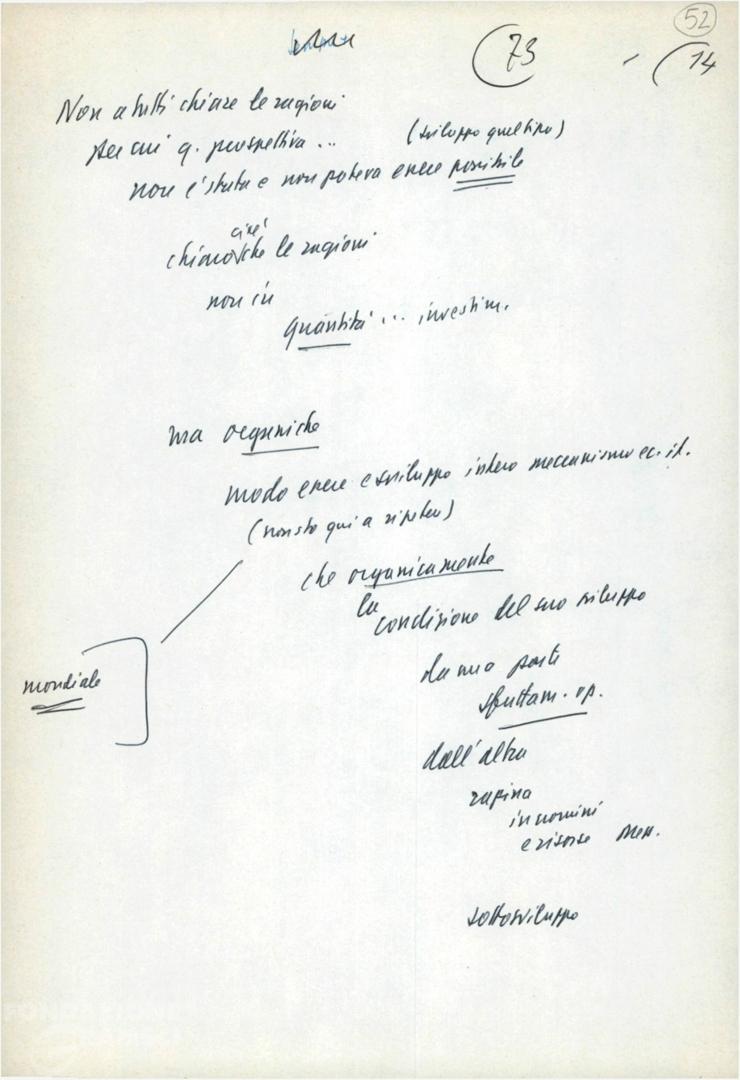 52
73
14
Non a tutti chiare le ragioni
per cui q. prospettiva ...
(sviluppo quel tipo)
non è stata e non poteva essere possibile
cioè
chiaro che le ragioni
non in
quantità ... investim.
ma organiche
modo essere e sviluppo intero meccanismo ec. it.
(non sto qui a ripeter)
che organicamente
la
condizione del suo sviluppo
mondiale
da una parte
sfruttam. op.
dall'altra
rapina
in uomini
e risorse Mer.
sottosviluppo